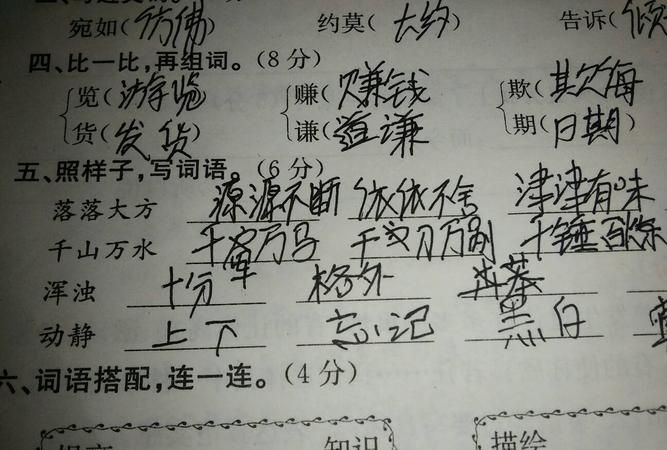 宛如(仿佛) 约莫(大约) 告诉(倾
四、比一比,再组词。(8分)
览(游览) 赚(赚钱) 欺(欺侮)
货(发货) 谦(道谦) 期(日期)
五、照样子,写词语。(6分)
落落大方 源源不断 依依不舍 津津有味
千山万水 千军万马 千刀万剐 千锤百炼
浑浊 十分 格外
动静 上下 忘记 黑白
六、词语搭配,连一连。(4分)
知识 描绘